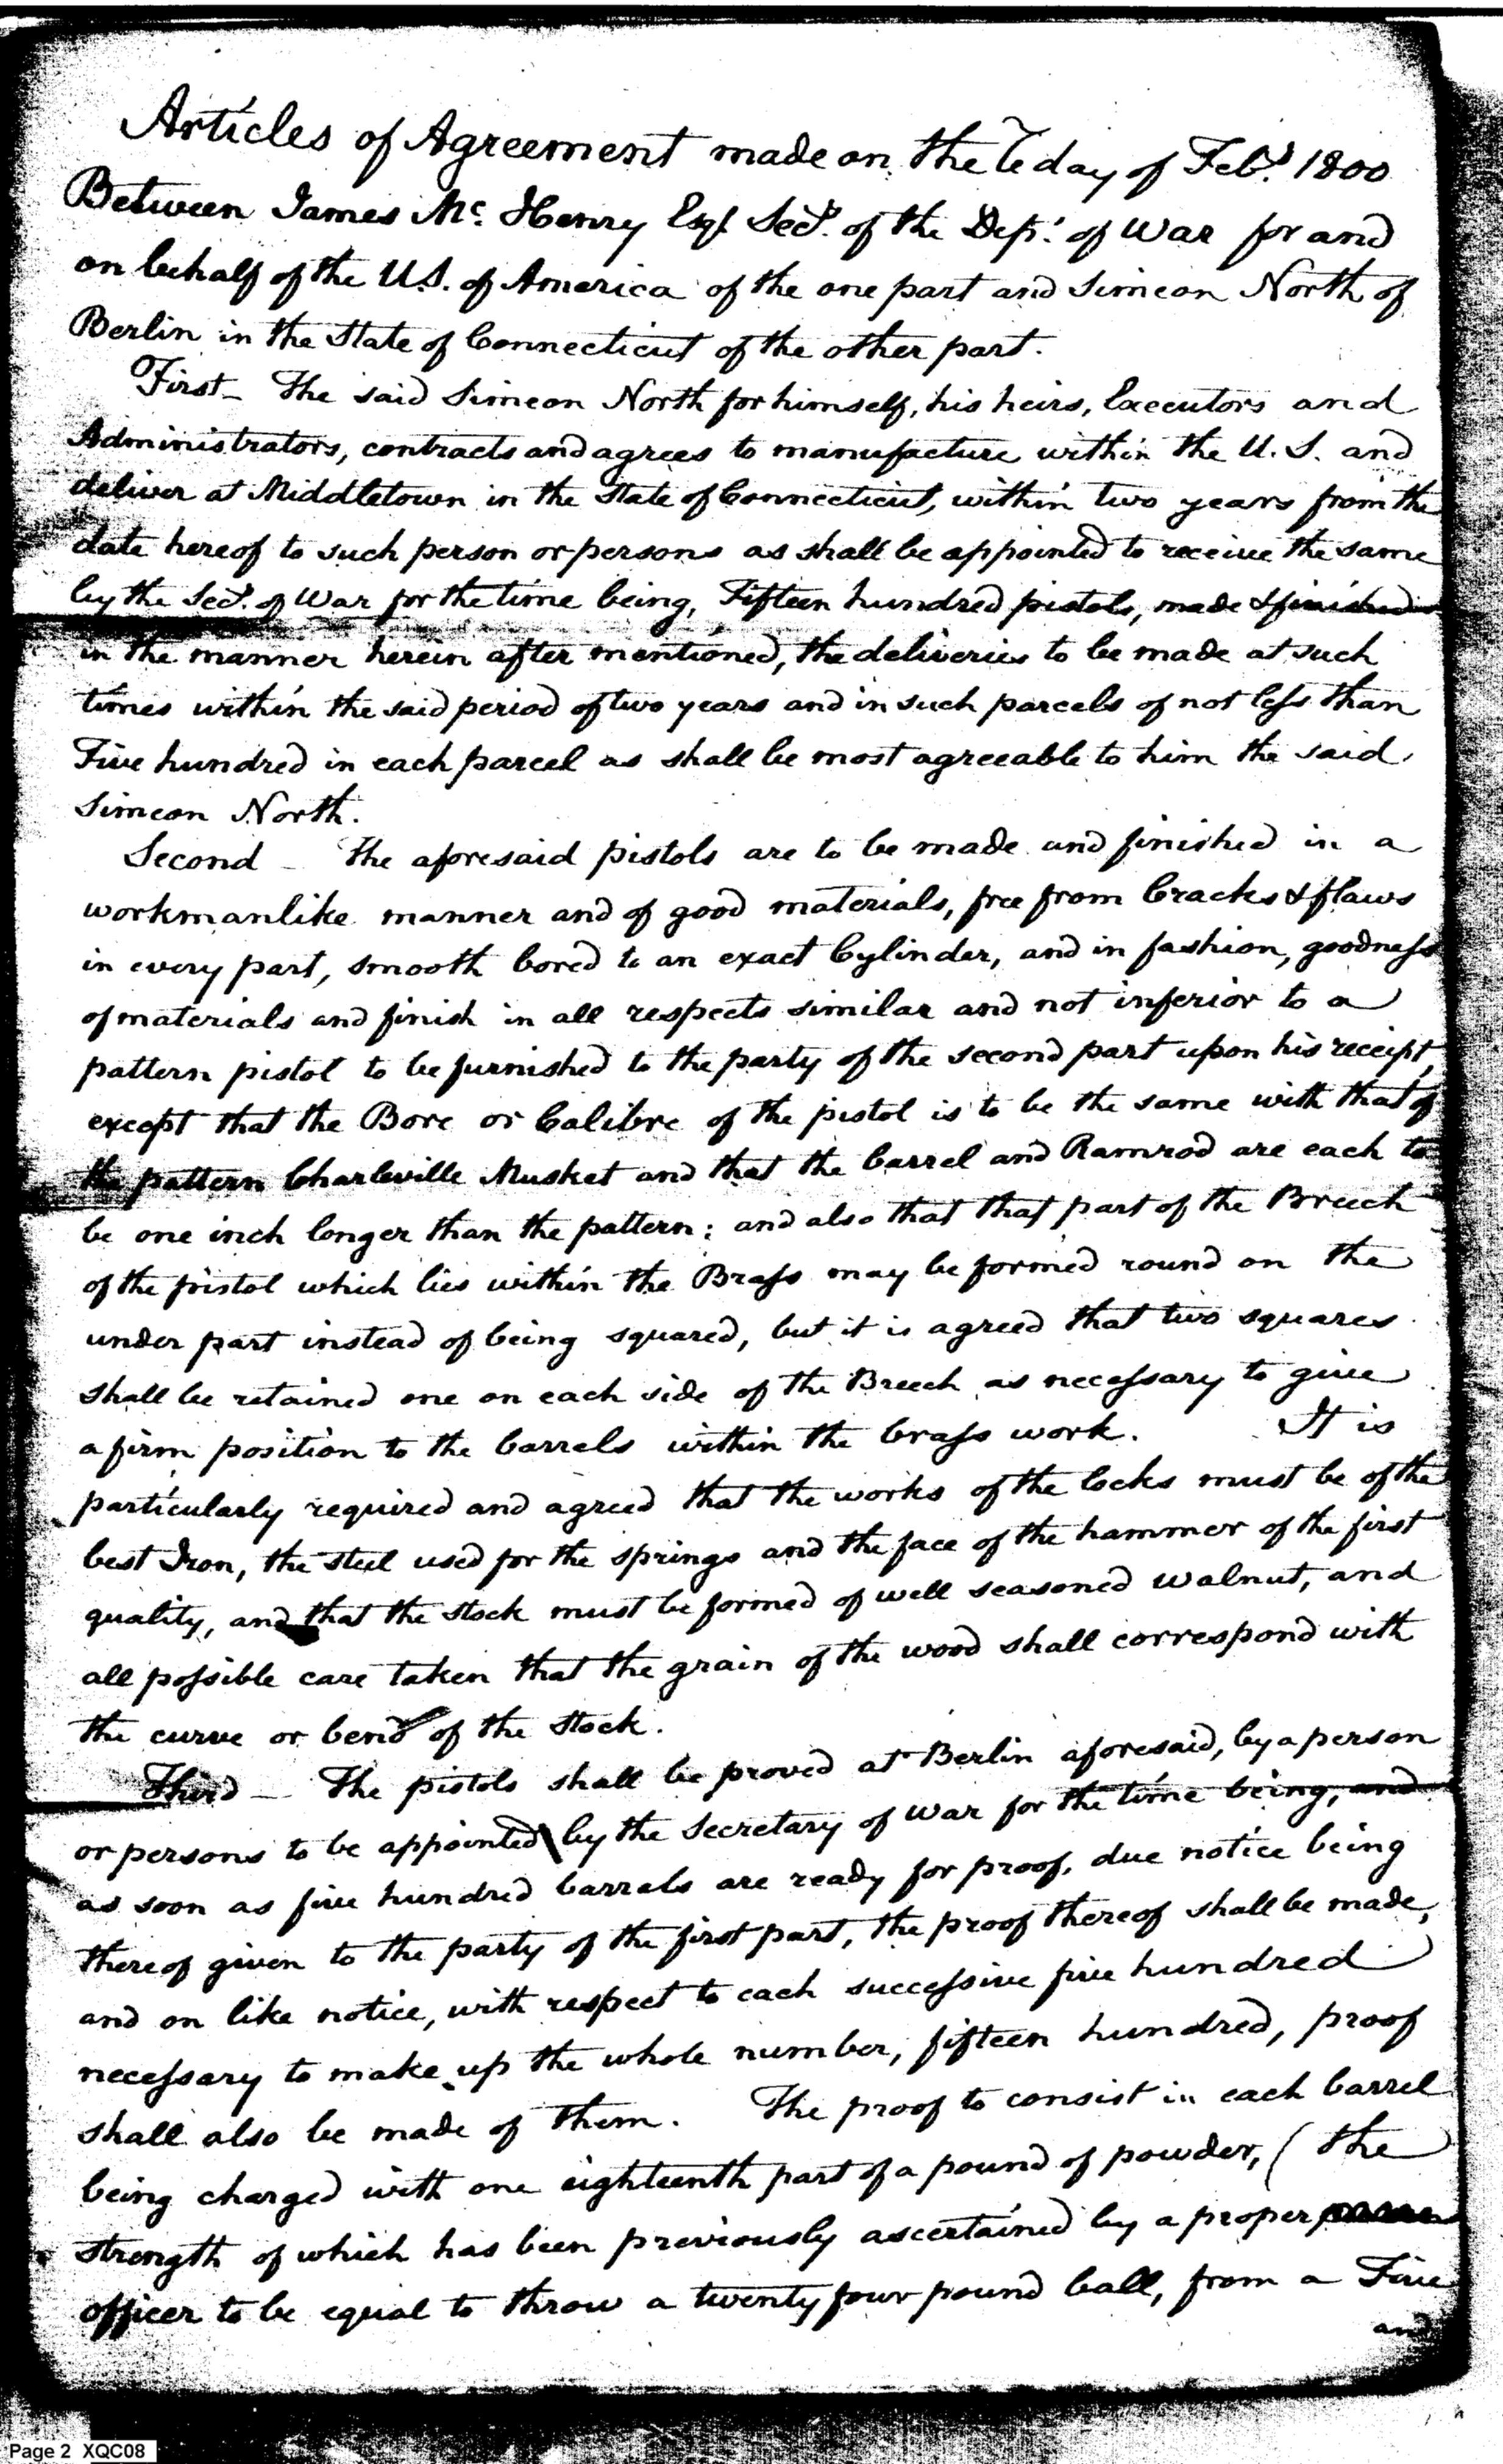 Articles of Agreement made on the 6 day of Feby. 1800
Between James Mc. Henry Esqr. Secy. of the Dept. of War for and
on behalf of the U.S. of America of the one part and Simeon North of
Berlin in the State of Connecticut of the other part.
First _ The said Simeon North for himself, his heirs, Executors and
Administrators, contracts and agrees to manufacture within the U. S. and
deliver at Middletown in the State of Connecticut, within two years from the
date hereof to such person or persons as shall be appointed to receive the same
by the Secy. of War for the time being, Fifteen hundred pistols, made & finished
in the manner herein after mentioned, the deliveries to be made at such
times within the said period of two years and in such parcels of not less than
Five hundred in each parcel as shall be most agreeable to him the said
Simeon North.
Second _ The aforesaid pistols are to be made and finished in a
workmanlike manner and of good materials, free from Cracks & flaws
in every part, smooth bored to an exact Cylinder, and in fashion, goodness
of materials and finish in all respects similar and not inferior to a
pattern pistol to be furnished to the party of the second part upon his receipt,
except that the Bore or Calibre of the pistol is to be the same with that of
the pattern Charleville Musket and that the barrel and Ramrod are each to
be one inch longer than the pattern; and also that that part of the Breech
of the pistol which lies within the Brass may be formed round on the
under part instead of being squared, but it is agreed that two squares
shall be retained one on each side of the Breech as necessary to give
a firm position to the barrels within the brass work. It is
particularly required and agreed that the works of the locks must be of the
best Iron, the steel used for the springs and the face of the hammer of the first
quality, and that the stock must be formed of well seasoned walnut, and
all possible care taken that the grain of the wood shall correspond with
the curve or bend of the stock.
Third _ The pistols shall be proved at Berlin aforesaid, by a person
or persons to be appointed by the Secretary of War for the time being, and
as soon as five hundred barrels are ready for proof, due notice being
thereof given to the party of the first part, the proof thereof shall be made,
and on like notice, with respect to each successive five hundred
necessary to make up the whole number, fifteen hundred, proof
shall also be made of them. The proof to consist in each barrel
being charged with one eighteenth part of a pound of powder, (the
strength of which has been previously ascertained by a proper
officer to be equal to throw a twenty four pound ball, from a Five
and
Page 2 XQC08